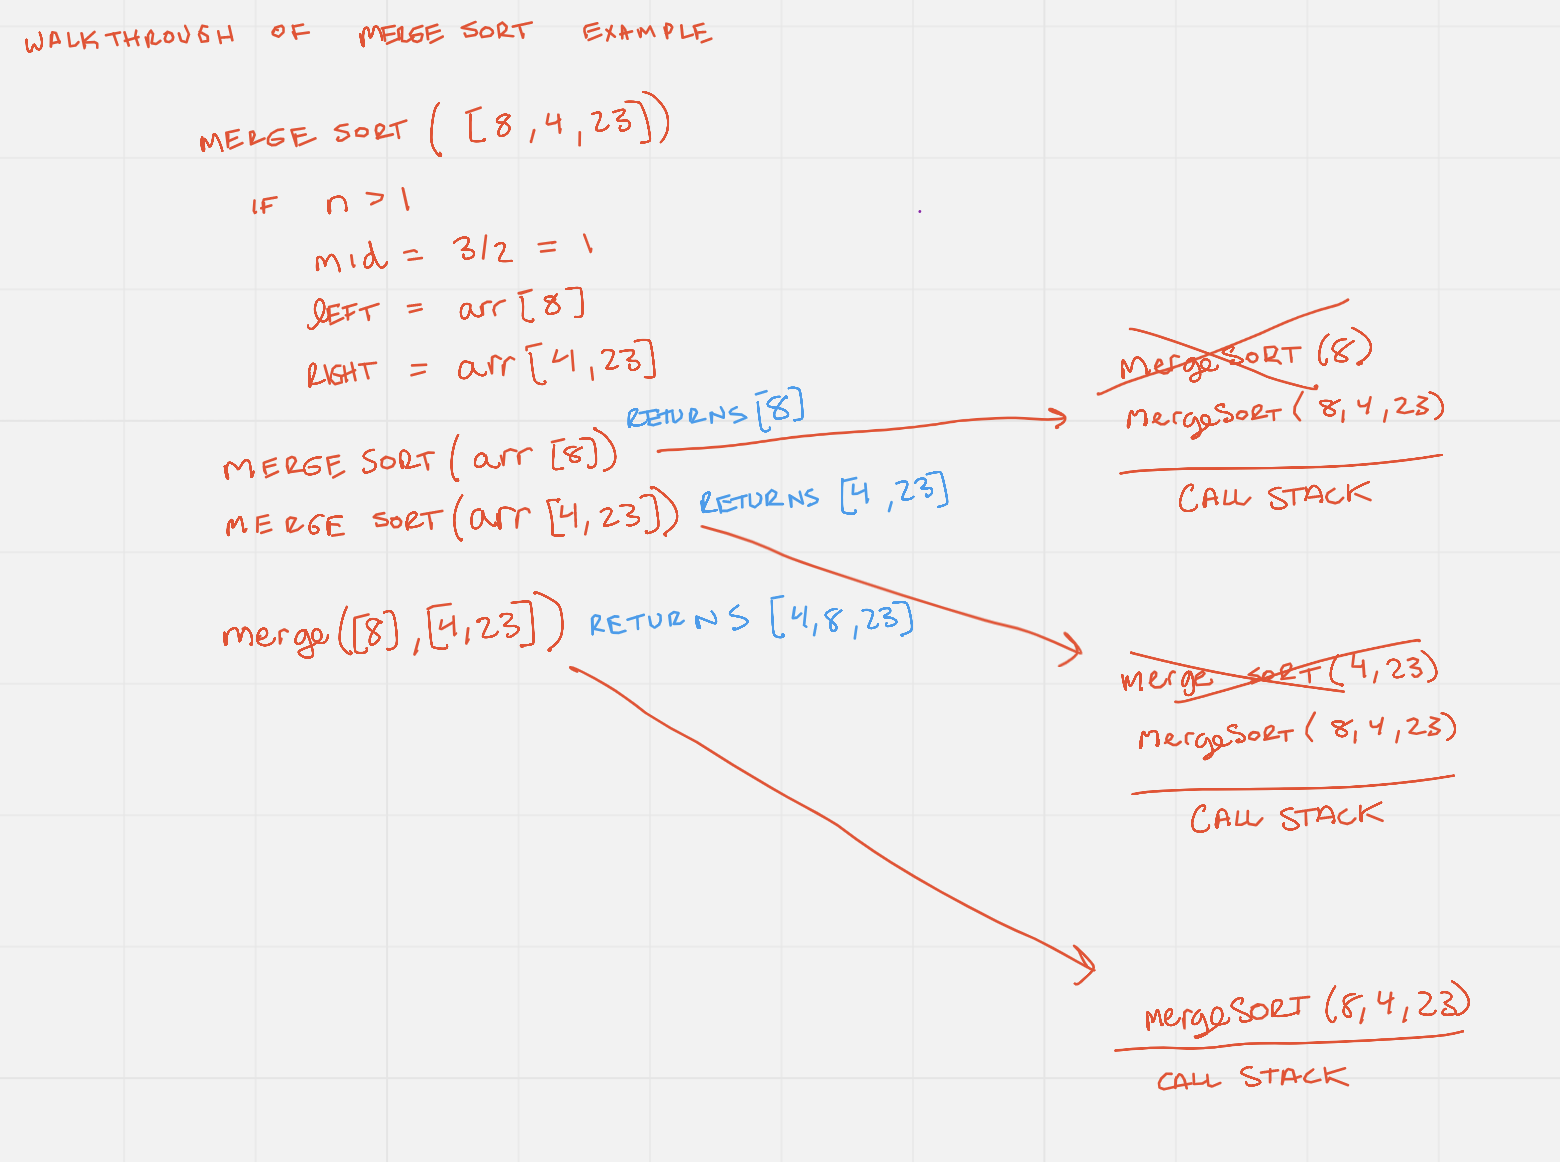 WALKTHROUGH OF MERGE SORT EXAMPLE
MERGE SORT ( [8, 4, 23])
IF n > 1
mid = 3/2 = 1
LEFT = arr [8]
RIGHT = arr [4, 23]
MERGE SORT (arr [8]) RETURNS [8]
MERGE SORT (arr [4, 23]) RETURNS [4, 23]
merge([8], [4, 23]) RETURNS [4, 8, 23]
mergeSORT (8)
mergeSORT ( 8, 4, 23)
CALL STACK
merge SORT (4, 23)
mergeSORT ( 8, 4, 23)
CALL STACK
mergeSORT (8, 4, 23)
CALL STACK